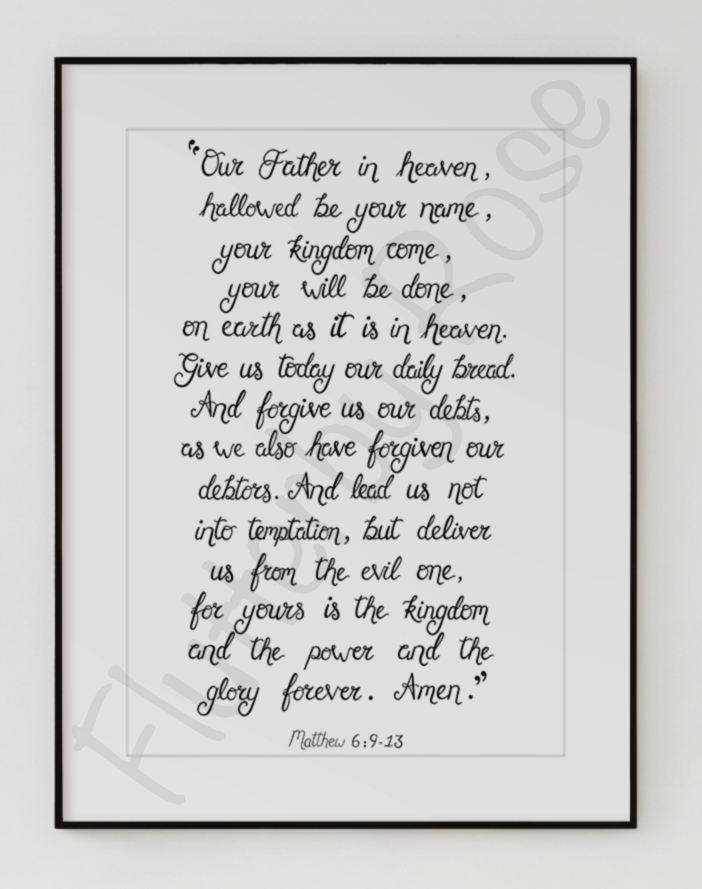 “Our Father in heaven,
hallowed be your name,
your kingdom come,
your will be done,
on earth as it is in heaven.
Give us today our daily bread.
And forgive us our debts,
as we also have forgiven our
debtors. And lead us not
into temptation, but deliver
us from the evil one,
for yours is the kingdom
and the power and the
glory forever. Amen.”
Matthew 6:9-13
Flutterby Rose